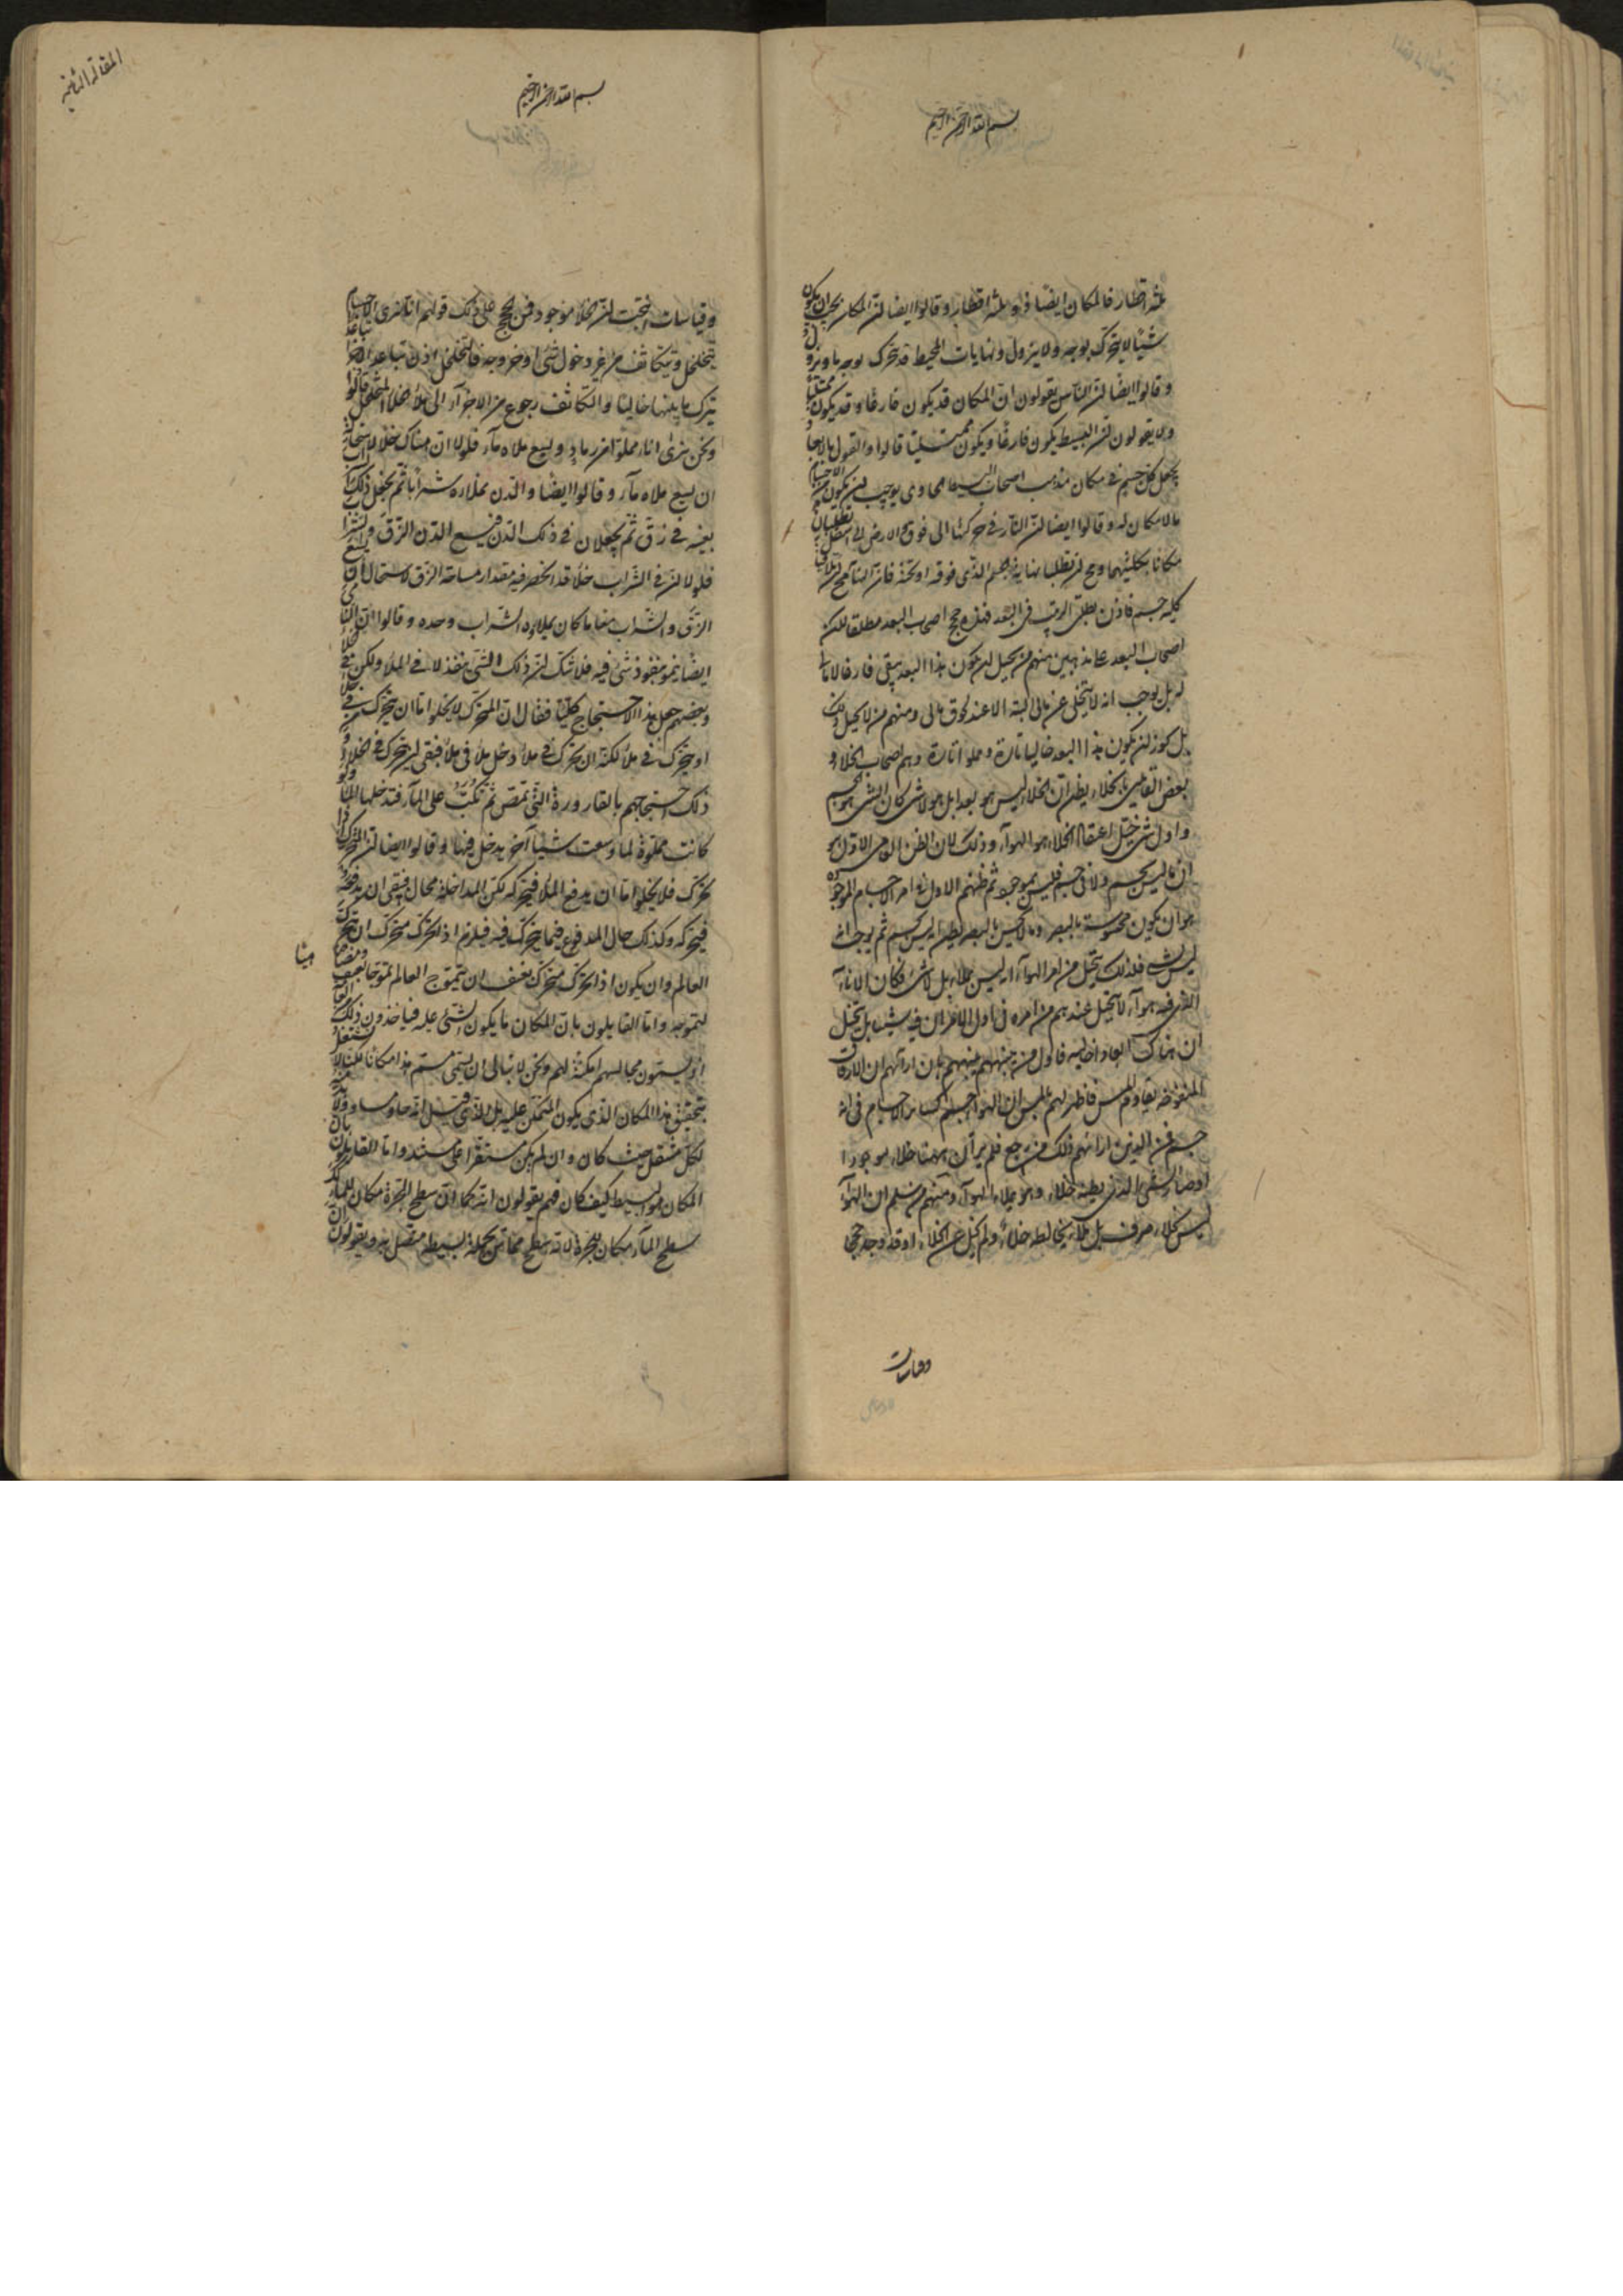 بسم الله الرحمن الرحيم
ثلثة اقطار فالمكان ايضا ذو ثلثة اقطار وقالوا ايضا ان المكان يجب ان يكون
شيئا لا يتحرك بوجه ولا يزول ونهايات المحيط قد تتحرك بوجه ما وتزول
وقالوا ايضا ان الناس يقولون ان المكان قد يكون فارغا وقد يكون ممتلئا
ولا يقولون ان البسيط يكون فارغا ويكون ممتليا قالوا والقول بالابعاد
يجعل كل جسم في مكان ومذهب اصحاب السطح الحاوى يوجب ان يكون من الاجسام
ما لا مكان له وقالوا ايضا ان النار في حركتها الى فوق والارض الى اسفل تطلبان
مكانا بكليتهما ومح ان تطلبا نهاية الجسم الذى فوقه او تحته فان النهاية مح ان تلاقيها
كلية جسم فاذن تطلق الترتيب في البعد فهذه حجج اصحاب البعد مطلقا لكن
اصحاب البعد على مذهبين منهم من يحيل ان يكون هذا البعد يبقى فارغا لا مالئ
له بل يوجب انه لا يتخلى عن مالى البتة الا عند لحوق مالى ومنهم من لا يحيل ذلك
بل يجوز ان يكون هذا البعد خاليا تارة ومملوا تارة وهم اصحاب الخلاء و
بعض القائلين بالخلاء يظن ان الخلاء ليس هو بعدا بل هو لا شى كان الشى هو الجسم
واول شى خيل اعتقاد الخلاء هو الهوآء وذلك لان الظن العامى الاول هو
ان ما ليس بجسم ولا في جسم فليس بموجود ثم ظنهم الاول في امر الاجسام الموجودة
هو ان يكون محسوسة بالبصر وما لا يحس بالبصر يظن انه ليس بجسم ثم يوجب انه
ليس بشى فلذلك يتخيل من امر الهوآء انه ليس بملاء بل لا شى فكان الاناء
الذى فيه هوآء لا يتخيل عندهم من امره في اول الامر ان فيه شيئا بل يتخيل
ان هناك ابعادا خالية فاول من نبههم نبههم بان اراهم ان الازقاق
المنفوخة تقاوم المس فاظهر لهم بالمس ان الهوآء جسم كساير الاجسام في انه
جسم فمن الذين اراهم ذلك من رجع فلم ير ان ههنا خلاء موجودا
اذ صار الشى الذى يظنه خلاء وهو ملاء الهوآء ومنهم من سلم ان الهوآء
ليس بخلاء صرف بل ملاء يخالطه خلاء ولم يخل عن الخلاء اذ قد وجد حججا
وقياسات
المقالة الثانية
بسم الله الرحمن الرحيم
وقياسات انتجت ان الخلأ موجود فمن الحجج على ذلك قولهم انا نرى الاجسام
تتخلخل وتتكاثف من غير دخول شى او خروجه فالتخلخل اذن تباعد الاجزا تباعدا
يترك ما بينها خاليا والتكاثف رجوع من الاجزآء الى ملأ الخلأ المتخلخل قالوا
ونحن نرى اناء مملوا من رماد ويسع ملاه مآء فلولا ان هناك خلأ لاستحال
ان يسع ملاه مآء وقالوا ايضا والدن يملأ شرابا ثم يجعل ذلك الشراب
بعينه في زق ثم يجعلان في ذلك الدن فيسع الدن الزق والشراب معا
فلولا ان في الشراب خلأ قد انحصر فيه مقدار مساحة الزق لاستحال ان يسع
الزق والشراب معا ما كان يملاوه الشراب وحده وقالوا ان النامى
ايضا ينمو بنفوذ شى فيه فلا شك ان ذلك الشى ينفذ لا في الملأ ولكن في الخلأ
وبعضهم جعل هذا الاحتجاج كليا فقال ان المتحرك لا يخلوا اما ان يتحرك في خلأ
او يتحرك في ملأ لكنه ان تحرك في ملأ دخل ملأ في ملأ فبقى ان يتحرك في الخلأ ومن
ذلك احتجاجهم بالقارورة التى تمص ثم تكب على المآء فتدخلها المآء ولو
كانت مملوة لما وسعت شيئا آخر يدخل فيها وقالوا ايضا ان المتحرك اذا
تحرك فلا يخلوا اما ان يدفع الملأ فيحركه لكن المداخلة محال فبقى ان يدفعه
فيحركه وكذلك حال المدفوع فيما يتحرك فيه فيلزم اذا تحرك متحرك ان يتحرك
العالم وان يكون اذا تحرك متحرك بعنف ان يتموج العالم تموجا بعنف ومضاهيا
لتموجه واما القايلون بان المكان ما يكون الشى عليه فياخذون ذلك من العامة
اذ يسمون مجالسهم امكنة لهم ونحن لا نبالى ان يسمى مسم هذا مكانا لكنا لا نشتغل
بتحقيق هذا المكان الذى يكون المتمكن عليه بل الذى قيل انه حاو مساو ولا بد منه
لكل منتقل حيث كان وان لم يكن مستقرا على مستند واما القايلون بان
المكان هو البسيط كيف كان فهم يقولون انه كما ان سطح الجرة مكان للمآء كذلك
سطح المآء مكان للجرة لانه سطح مماس بجملة بسيط متصل به ويقولون ان